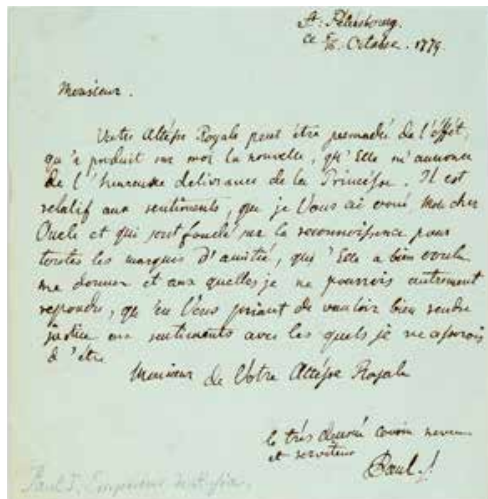 St: Petersbourg.
ce 5/16. Octobre. 1779.
Monsieur.
Votre Altesse Royale peut être persuadée de l'éffét,
qu'a produit sur moi la nouvelle, qu'Elle m'annonce
de l'heureuse delivrance de la Princesse. Il est
relatif aux sentiments, que je Vous ai voué, mon cher
Oncle et qui sont fondé sur la reconnoissence pour
toutes les marques d'amitié, que Elle a bien voulu
me donner et aux quelles je ne pourrois autrement
repondre, qu'en Vous priant de vouloir bien rendre
justice aux sentiments avec les quels je ne
d'être
Monsieur de Votre Altesse Royale
le très devoué cousin neveu
et serviteur
Paul
Paul I, Empereur de Russie.